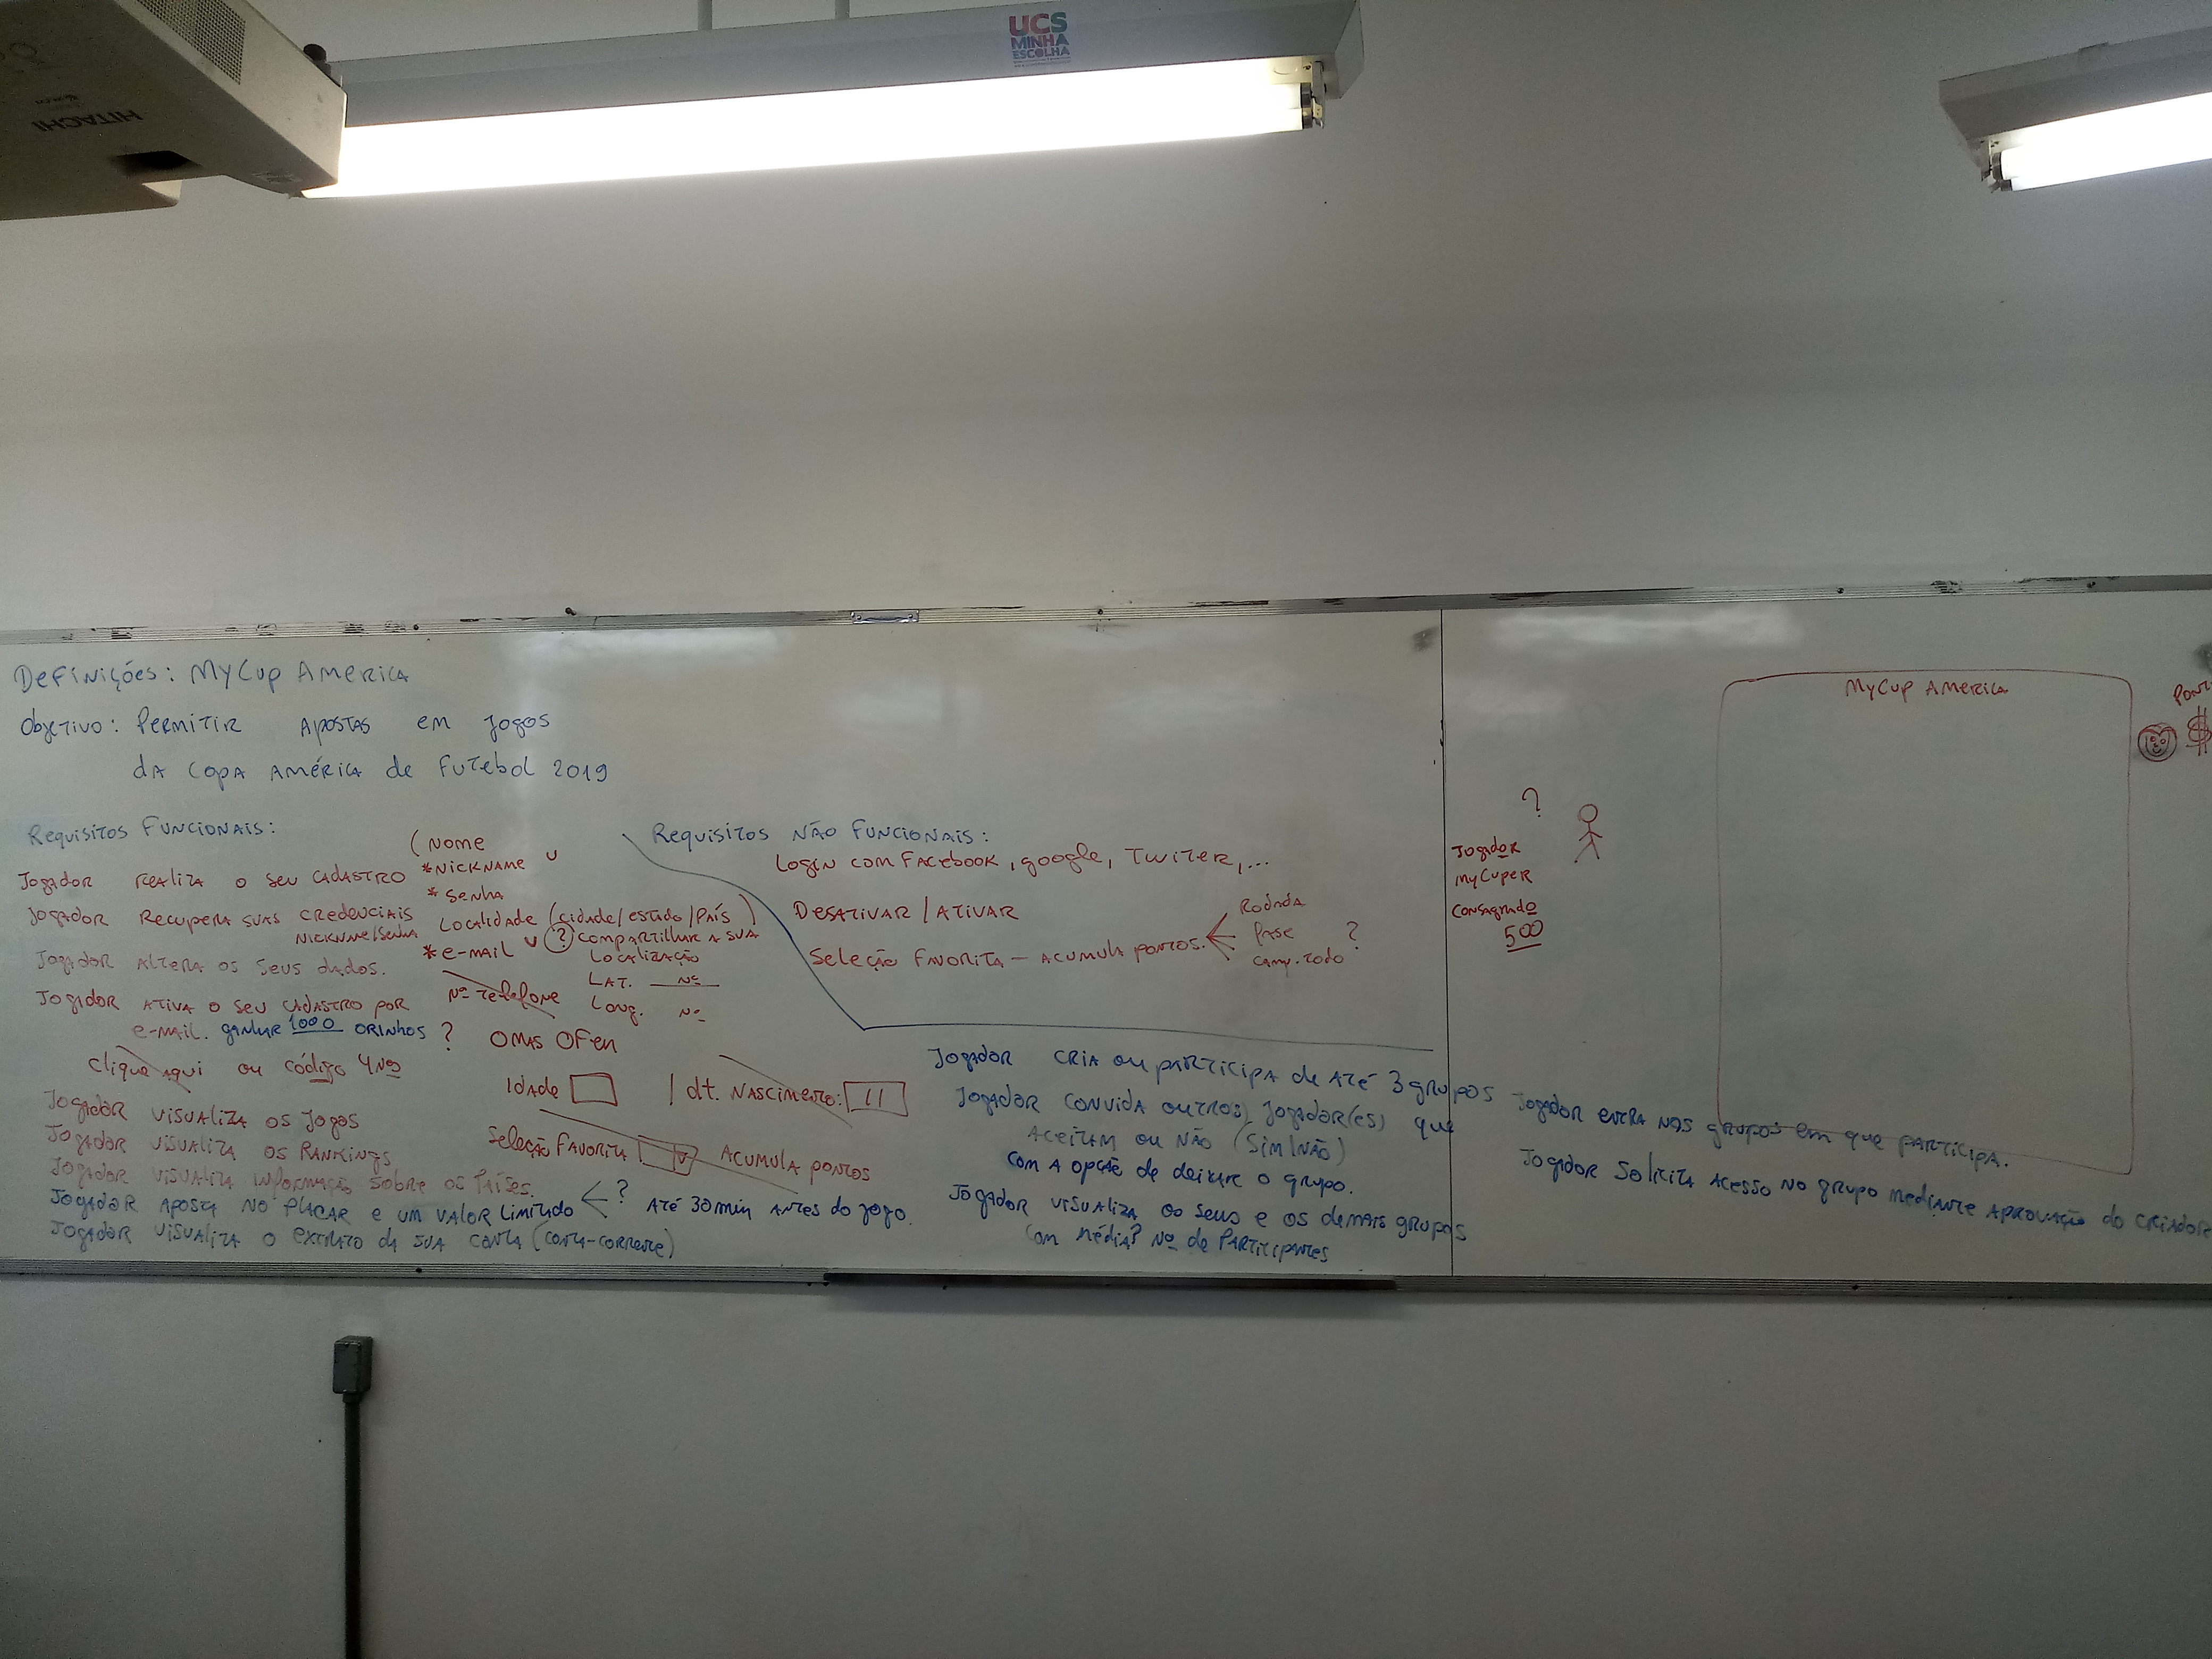 UCS
MINHA
ESCOLHA
HITACHI
Definições: MyCup America
Objetivo: Permitir apostas em jogos
da Copa América de Futebol 2019
Requisitos Funcionais:
Jogador realiza o seu cadastro
(Nome
*Nickname U
* Senha
Localidade (cidade/estado/País)
* e-mail U (?) compartilhar a sua
Localização
Lat. Nº
Long. Nº
Nº Telefone
Jogador recupera suas credenciais
Nickname/Senha
Jogador altera os seus dados.
Jogador ativa o seu cadastro por
e-mail. ganhar 1000 orinhos ?
Clique aqui ou código 4 Nos
Omas Ofen
Idade
| dt. Nascimento: / /
Seleção Favorita V Acumula pontos
Jogador visualiza os jogos
Jogador visualiza os Rankings
Jogador visualiza informação sobre os Países.
Jogador aposta no placar e um valor limitado < ? Até 30 min antes do jogo.
Jogador visualiza o extrato da sua conta (conta-corrente)
Requisitos não Funcionais:
Login com Facebook, google, Twiter, ...
Desativar / Ativar
Seleção Favorita - acumula pontos.
Rodada
Fase ?
camp. todo
Jogador cria ou participa de até 3 grupos
Jogador convida outro(s) jogador(es) que
aceitam ou não (Sim/Não)
com a opção de deixar o grupo.
Jogador visualiza os seus e os demais grupos
com média? Nº de Participantes
?
Jogador
MyCuper
Consagrado
500
MyCup America
$
Jogador entra nos grupos em que participa.
Jogador solicita acesso no grupo mediante aprovação do criador